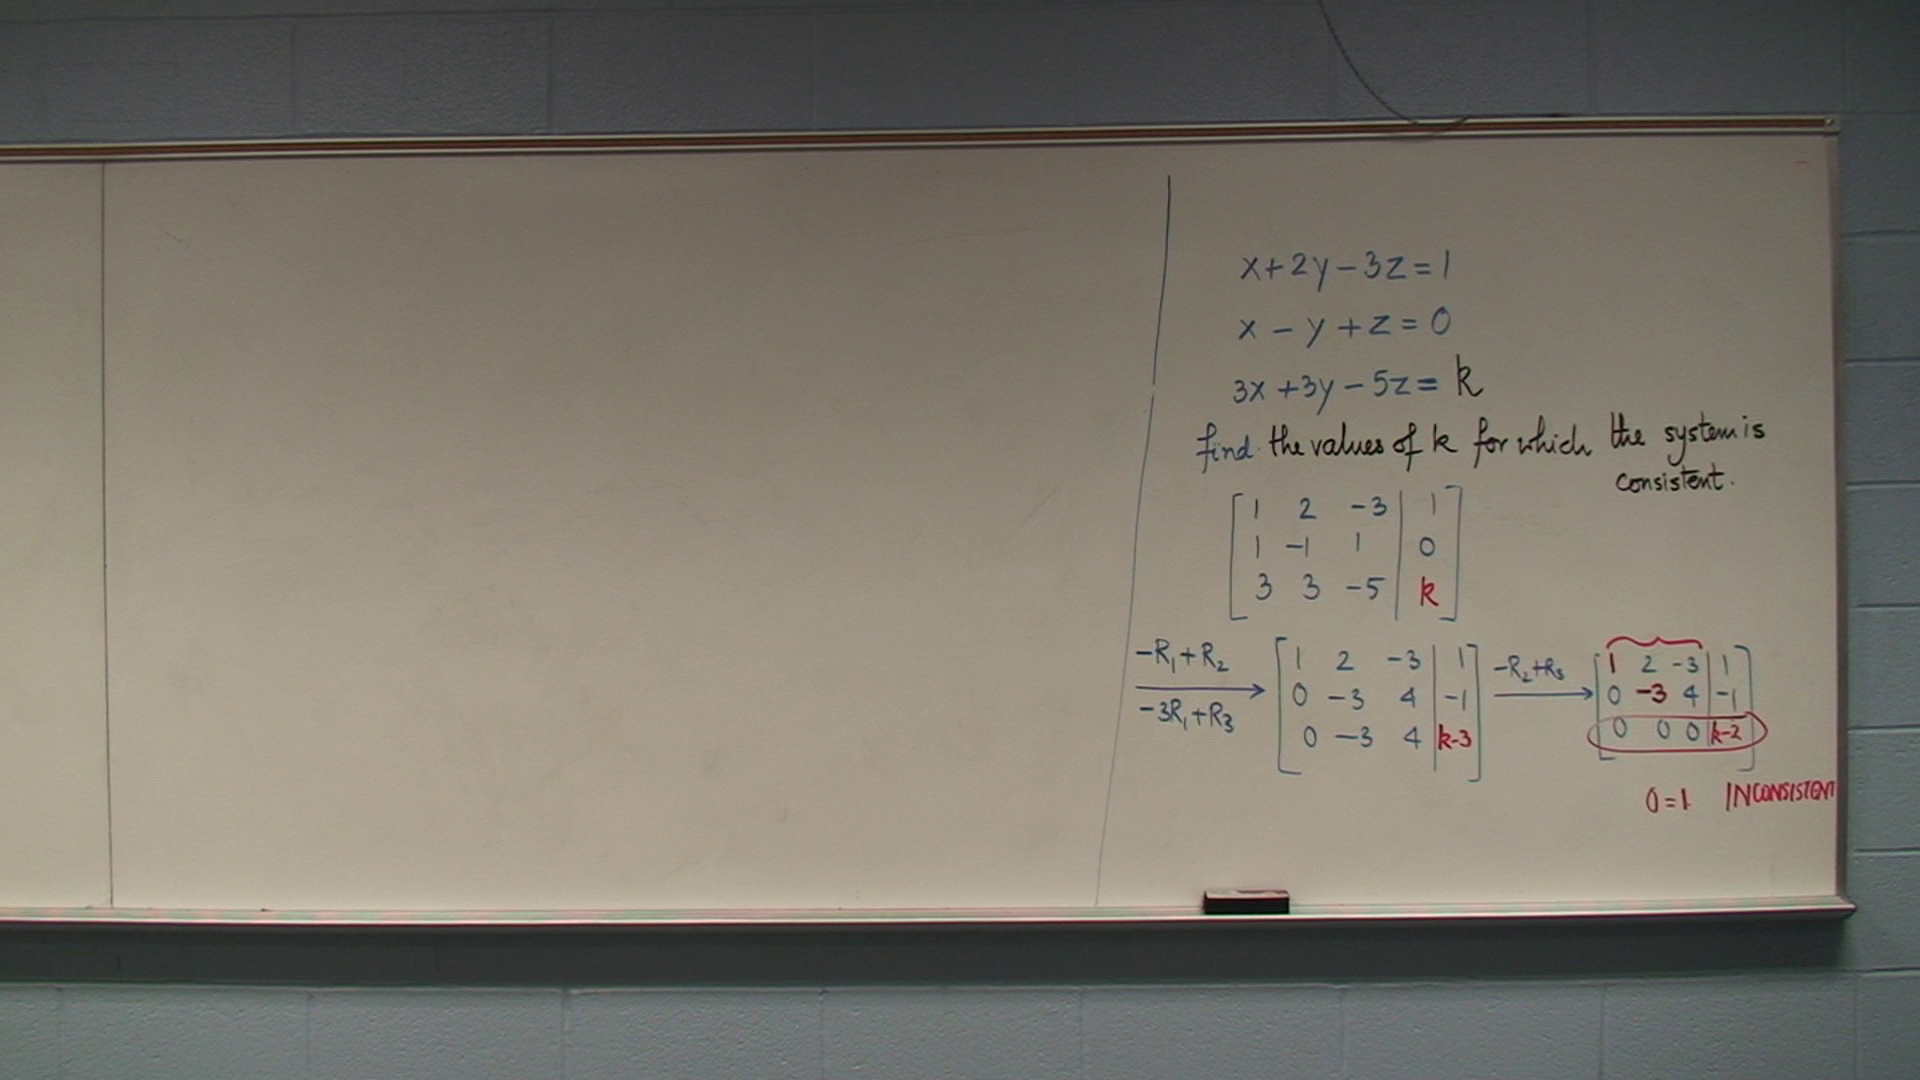 x+2y-3z=1
x-y+z=0
3x+3y-5z= k
find the values of k for which the system is
consistent.
1 2 -3 | 1
1 -1 1 | 0
3 3 -5 | k
-R₁+R₂
-3R₁+R₃
1 2 -3 | 1
0 -3 4 | -1
0 -3 4 | k-3
-R₂+R₃
1 2 -3 | 1
0 -3 4 | -1
0 0 0 | k-2
0=1 INCONSISTENT